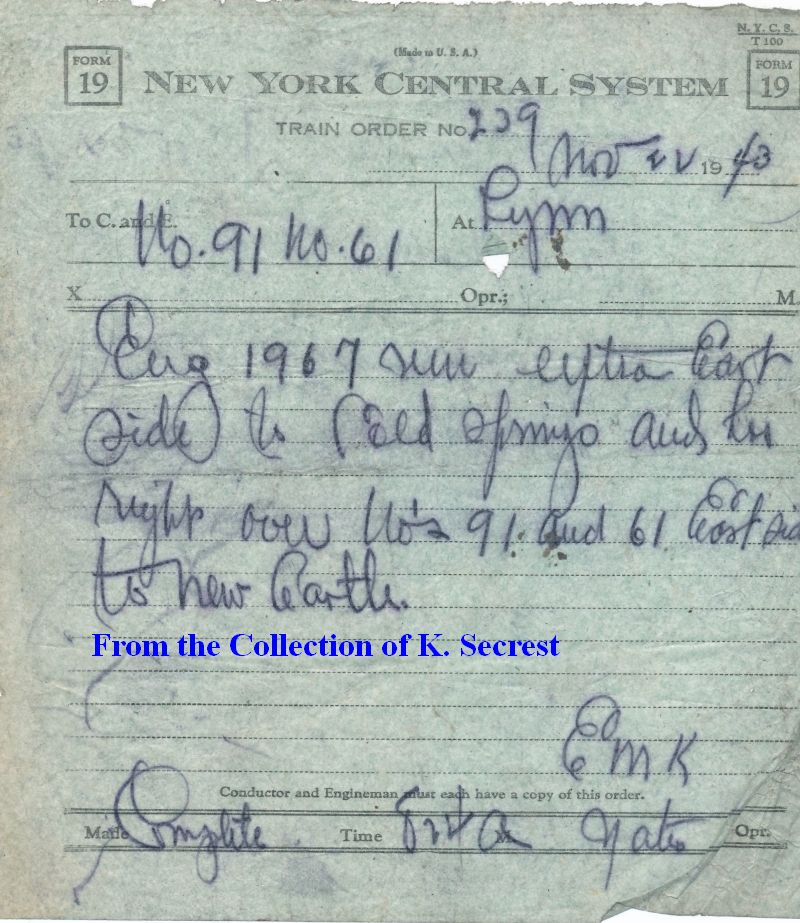 N. Y. C. S.
T 100
(Made in U. S. A.)
FORM
19
NEW YORK CENTRAL SYSTEM
FORM
19
TRAIN ORDER No. 239
Nov 22 1943
To C. and E.
No. 91 No. 61
At Lynn
X Opr.; M.
Eng 1967 run extra East
side to Cold Springs and has
right over No's 91 and 61 East
to new Earth.
From the Collection of K. Secrest
EMK
Conductor and Engineman must each have a copy of this order.
Made Complete Time M Opr.